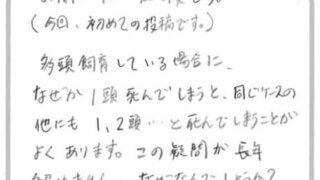 (今回、初めての投稿です。)
多頭飼育している場合に、
なぜか1頭死んでしまうと、同じケースの
他にも1,2頭…と死んでしまうことが
よくあります。この疑問が長年